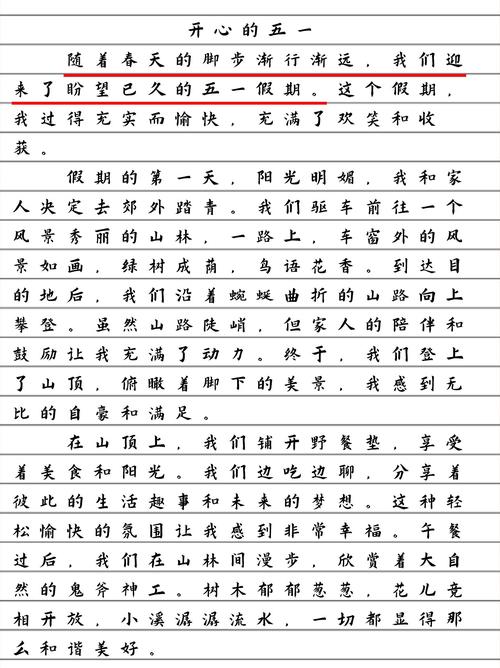 开心的五一
随着春天的脚步渐行渐远，我们迎
来了盼望已久的五一假期。这个假期，
我过得充实而愉快，充满了欢笑和收
获。
假期的第一天，阳光明媚，我和家
人决定去郊外踏青。我们驱车前往一个
风景秀丽的山林，一路上，车窗外的风
景如画，绿树成荫，鸟语花香。到达目
的地后，我们沿着蜿蜒曲折的山路向上
攀登。虽然山路陡峭，但家人的陪伴和
鼓励让我充满了动力。终于，我们登上
了山顶，俯瞰着脚下的美景，我感到无
比的自豪和满足。
在山顶上，我们铺开野餐垫，享受
着美食和阳光。我们边吃边聊，分享着
彼此的生活趣事和未来的梦想。这种轻
松愉快的氛围让我感到非常幸福。午餐
过后，我们在山林间漫步，欣赏着大自
然的鬼斧神工。树木郁郁葱葱，花儿竞
相开放，小溪潺潺流水，一切都显得那
么和谐美好。